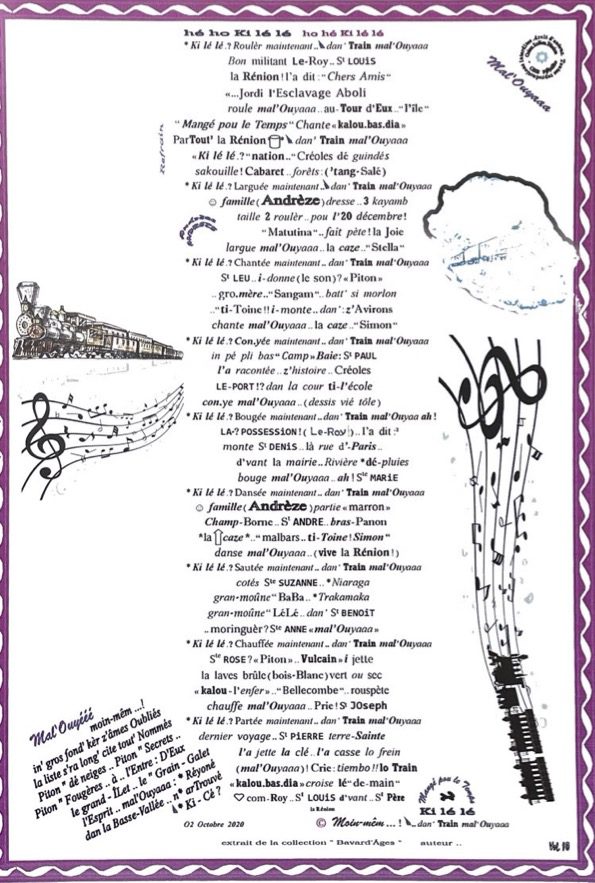 hé ho Ki lé lé ho hé Ki lé lé
* Ki lé lé.? Roulèr maintenant.. dan' Train mal'Ouyaaa
Bon militant Le-Roy.. Sᵗ LOUIS
la Rénion! l'a dit : "Chers Amis"
«...Jordi l'Esclavage Aboli
roule mal'Ouyaaa.. au-Tour d'Eux.. "l'île"
"Mangé pou le Temps" Chante «kalou.bas.dia»
ParTout' la Rénion dan' Train mal'Ouyaaa
«Ki lé lé.? "nation.." Créoles dé guindés
sakouille! Cabaret.. forêts: ('tang-Salé)
* Ki lé lé.? Larguée maintenant.. dan' Train mal'Ouyaaa
☺ famille (Andrèze) dresse.. 3 kayamb
taille 2 roulèr.. pou l'20 décembre!
"Matutina".. fait pète! la Joie
largue mal'Ouyaaa.. la caze.. "Stella"
* Ki lé lé.? Chantée maintenant.. dan' Train mal'Ouyaaa
Sᵗ LEU.. i-donne (le son)? «Piton»
.. gro.mère.. "Sangam".. batt' si morlon
.. "ti-Toine!! i-monte.. dan': z'Avirons
chante mal'Ouyaaa.. la caze.. "Simon"
* Ki lé lé.? Con.yée maintenant.. dan' Train mal'Ouyaaa
in pé pli bas "Camp» Baie: Sᵗ PAUL
l'a racontée.. z'histoire.. Créoles
LE-PORT!? dan la cour ti-l'école
con.ye mal'Ouyaaa.. (dessis vié tôle)
* Ki lé lé.? Bougée maintenant.. dan' Train mal'Ouyaa ah!
LA-? POSSESSION! ( Le-Roy ).. l'a dit :
monte Sᵗ DENIS.. là rue d'-Paris..
d'vant la mairie.. Rivière *dé-pluies
bouge mal'Ouyaaa.. ah! Sᵗᵉ MARIE
* Ki lé lé.? Dansée maintenant.. dan' Train mal'Ouyaaa
☺ famille (Andrèze) partie «marron»
Champ-Borne.. Sᵗ ANDRE.. bras-Panon
*la caze *.. "malbars.. ti-Toine! Simon"
danse mal'Ouyaaa.. (vive la Rénion!)
* Ki lé lé.? Sautée maintenant.. dan' Train mal'Ouyaaa
cotés Sᵗᵉ SUZANNE.. *Niaraga
gran-moûne" BaBa.. *Trakamaka
gran-moûne" LéLé.. dan' Sᵗ BENOIT
.. moringuèr? Sᵗᵉ ANNE «mal'Ouyaaa»
* Ki lé lé.? Chauffée maintenant.. dan' Train mal'Ouyaaa
Sᵗᵉ ROSE? «Piton».. Vulcain» i jette
la laves brûle (bois-Blanc) vert ou sec
«kalou-l'enfer».. "Bellecombe".. rouspète
chauffe mal'Ouyaaa.. Prie! Sᵗ JOseph
* Ki lé lé.? Partée maintenant.. dan' Train mal'Ouyaaa
dernier voyage.. Sᵗ PiERRE terre-Sainte
l'a jette la clé.. l'a casse lo frein
(mal'Ouyaaa)! Crie: tiembo!! lo Train
«kalou.bas.dia» croise lé "de-main"
♡ com-Roy.. Sᵗ LOUIS d'vant.. Sᵗ Père
la Rénion
O2 Octobre 2020
© Moin-mêm...! .. dan' Train mal'Ouyaaa
extrait de la collection " Bavard'Ages " auteur ..
Refrain
Mal'Ouyaaa
Mal'Ouyééé moin-mêm ...!
in' gros fond' kèr z'âmes Oubliés
la liste s'ra long' cite tout' Nommés
Piton " dé neiges .. Piton " Secrets ..
Piton " Fougères .. à .. l'Entre : D'Eux
le grand - ILeL .. le " Grain - Galet
l'Esprit .. mal'Ouyaaa : * Réyoné
dan la Basse-Vallée .. n° arTrouvé
Ki - Cé ?
Mangé pou le Temps
Ki lé lé